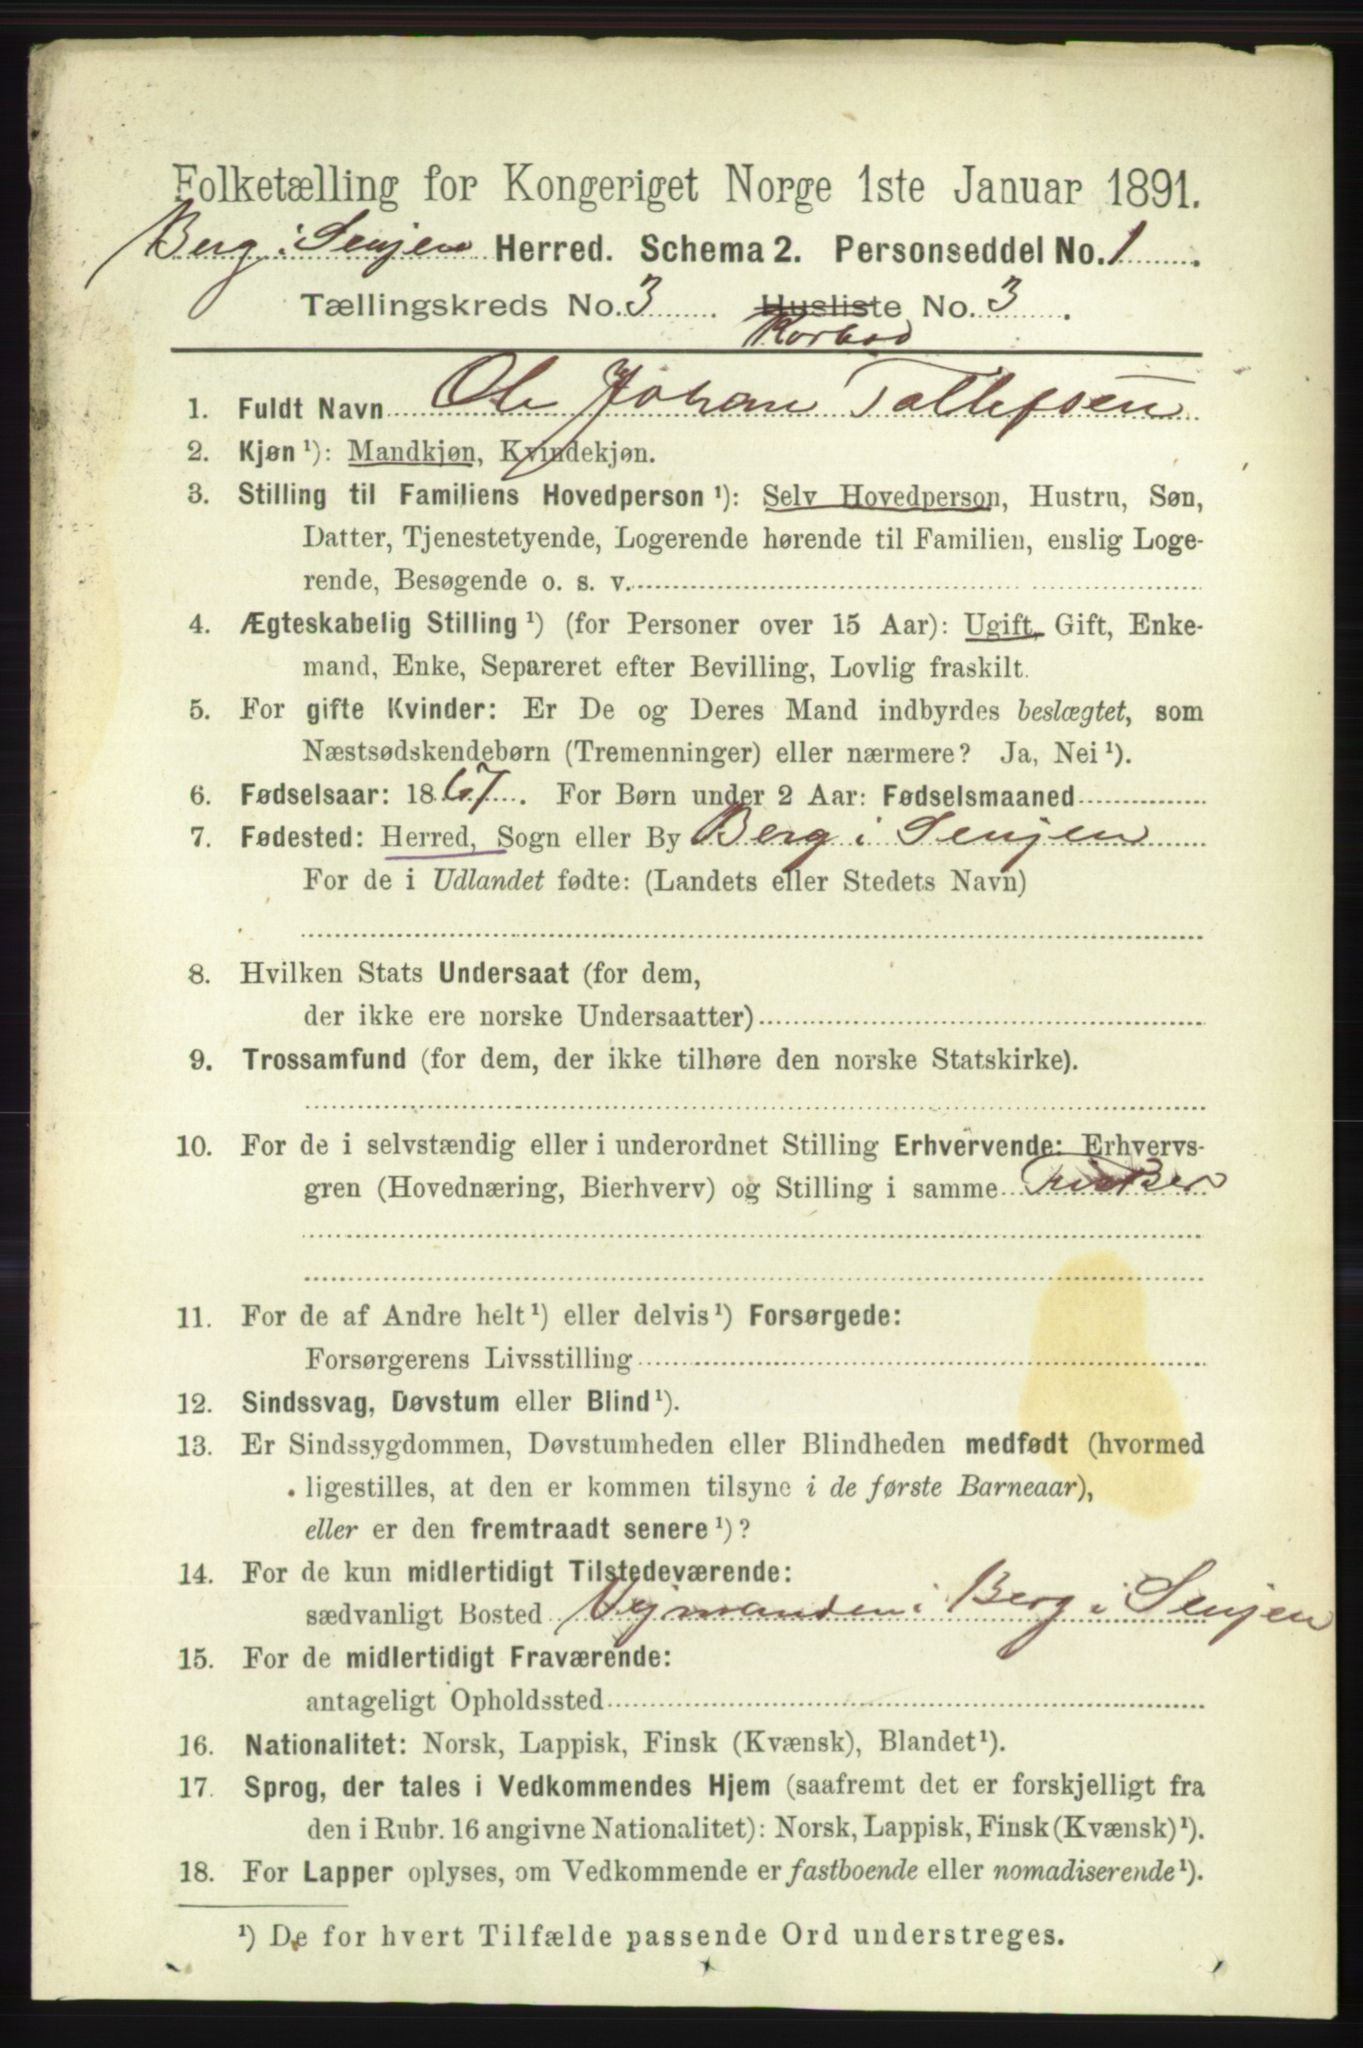 Folketælling for Kongeriget Norge 1ste Januar 1891.
Berg i Senjen Herred. Schema 2. Personseddel No. 1
Tællingskreds No. 3 Husliste No. 3
1. Fuldt Navn Ole Johan Tollefsen
2. Kjøn ¹): Mandkjøn, Kvindekjøn.
3. Stilling til Familiens Hovedperson ¹): Selv Hovedperson, Hustru, Søn,
Datter, Tjenestetyende, Logerende hørende til Familien, enslig Loge-
rende, Besøgende o. s. v.
4. Ægteskabelig Stilling ¹) (for Personer over 15 Aar): Ugift, Gift, Enke-
mand, Enke, Separeret efter Bevilling, Lovlig fraskilt.
5. For gifte Kvinder: Er De og Deres Mand indbyrdes beslægtet, som
Næstsødskendebørn (Tremenninger) eller nærmere? Ja, Nei ¹).
6. Fødselsaar: 1867. For Børn under 2 Aar: Fødselsmaaned
7. Fødested: Herred, Sogn eller By Berg i Senjen
For de i Udlandet fødte: (Landets eller Stedets Navn)
8. Hvilken Stats Undersaat (for dem,
der ikke ere norske Undersaatter)
9. Trossamfund (for dem, der ikke tilhøre den norske Statskirke).
10. For de i selvstændig eller i underordnet Stilling Erhvervende: Erhvervs-
gren (Hovednæring, Bierhverv) og Stilling i samme
11. For de af Andre helt ¹) eller delvis ¹) Forsørgede:
Forsørgerens Livsstilling
12. Sindssvag, Døvstum eller Blind ¹).
13. Er Sindssygdommen, Døvstumheden eller Blindheden medfødt (hvormed
ligestilles, at den er kommen tilsyne i de første Barneaar),
eller er den fremtraadt senere ¹)?
14. For de kun midlertidigt Tilstedeværende:
sædvanligt Bosted i Berg i Senjen
15. For de midlertidigt Fraværende:
antageligt Opholdssted
16. Nationalitet: Norsk, Lappisk, Finsk (Kvænsk), Blandet ¹).
17. Sprog, der tales i Vedkommendes Hjem (saafremt det er forskjelligt fra
den i Rubr. 16 angivne Nationalitet): Norsk, Lappisk, Finsk (Kvænsk) ¹).
18. For Lapper oplyses, om Vedkommende er fastboende eller nomadiserende ¹).
¹) De for hvert Tilfælde passende Ord understreges.